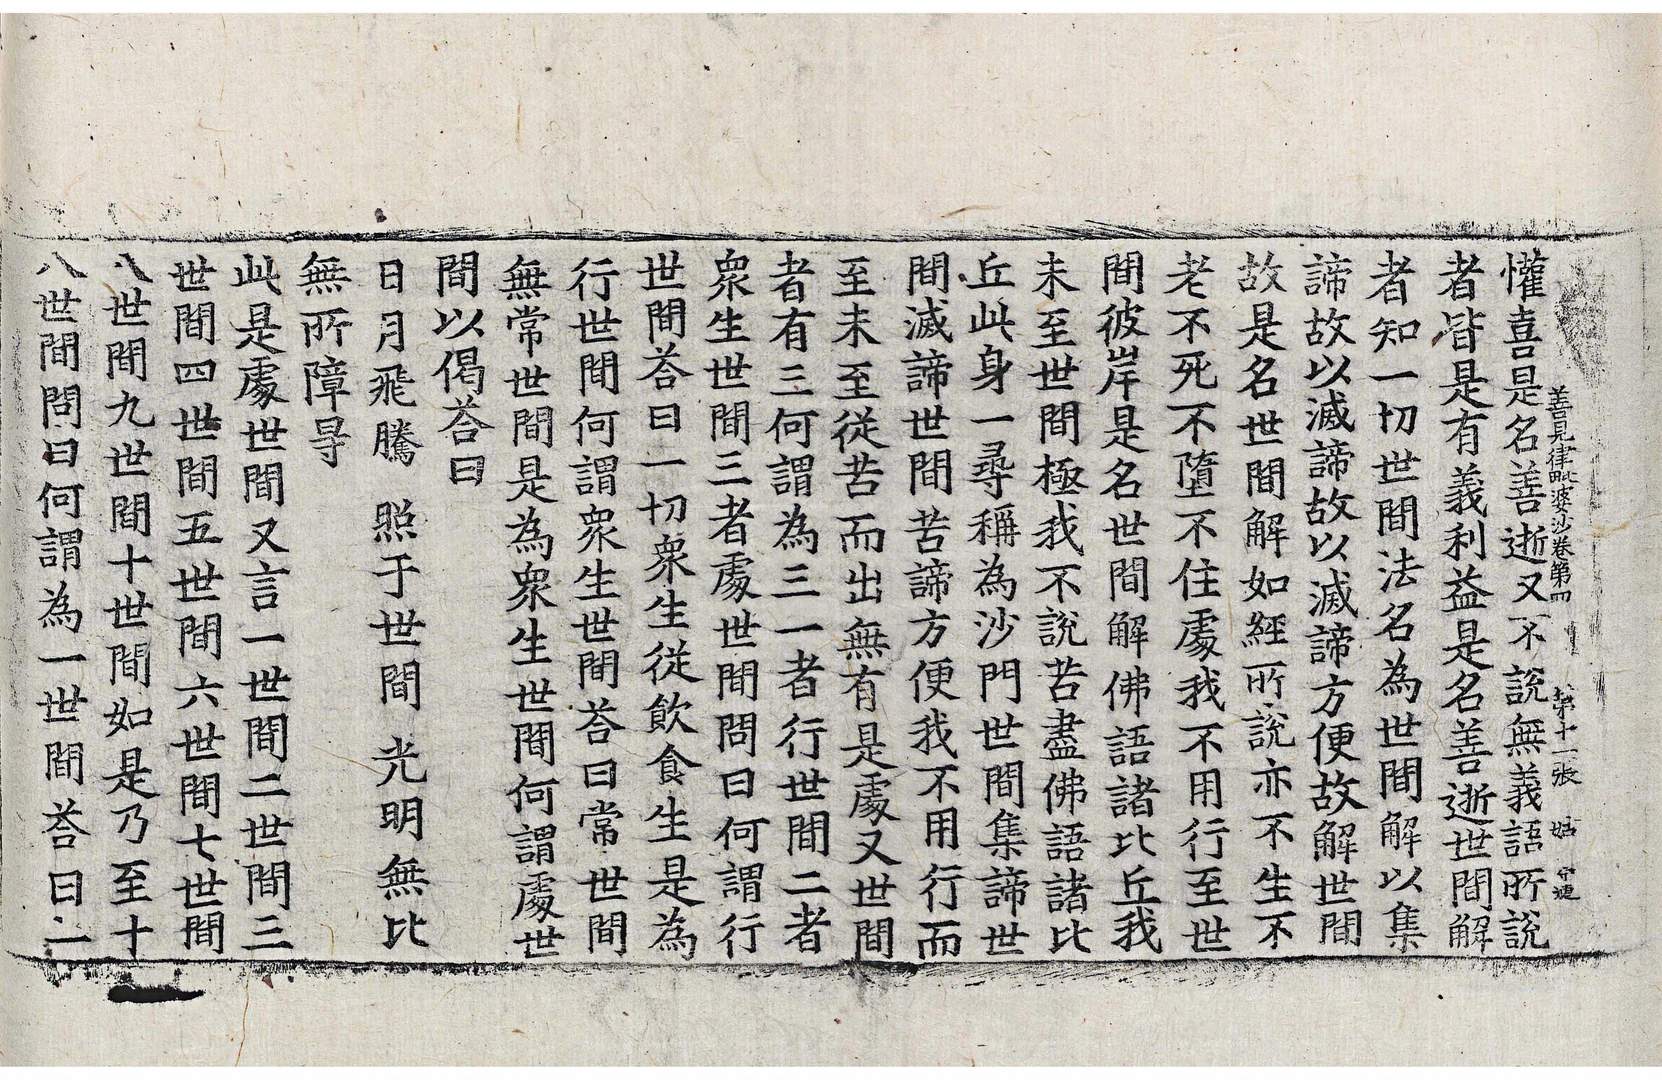 善見律毗婆沙卷第四 第十一張 姑
懽喜是名善逝又不說無義語所說
者皆是有義利益是名善逝世間解
者知一切世間法名為世間解以集
諦故以滅諦故以滅諦方便故解世間
故是名世間解如經所說亦不生不
老不死不墮不住處我不用行至世
間彼岸是名世間解佛語諸比丘我
未至世間極我不說苦盡佛語諸比
丘此身一尋稱為沙門世間集諦世
間滅諦世間苦諦方便我不用行而
至未至從苦而出無有是處又世間
者有三何謂為三一者行世間二者
衆生世間三者處世間問曰何謂行
世間荅曰一切衆生從飲食生是為
行世間何謂衆生世間荅曰常世間
無常世間是為衆生世間何謂處世
間以偈荅曰
日月飛騰 照于世間 光明無比
無所障㝵
此是處世間又言一世間二世間三
世間四世間五世間六世間七世間
八世間九世間十世間如是乃至十
八世間問曰何謂為一世間荅曰二